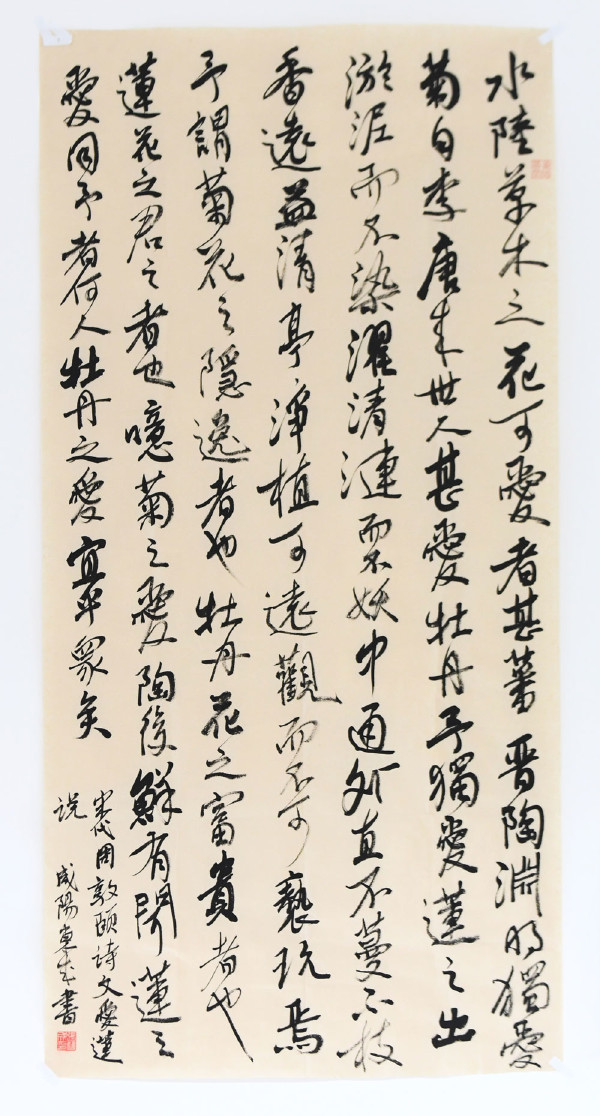 水陸草木之花可愛者甚蕃晋陶淵明獨愛
菊自李唐来世人甚愛牡丹予獨愛蓮之出
淤泥而不染濯清漣而不妖中通外直不蔓不枝
香遠益清亭淨植可遠觀而不可褻玩焉
予謂菊花之隱逸者也牡丹花之富貴者也
蓮花之君子者也噫菊之愛陶後鮮有聞蓮之
愛同予者何人牡丹之愛宜乎眾矣
宋代周敦頤詩文愛蓮
说 咸陽書